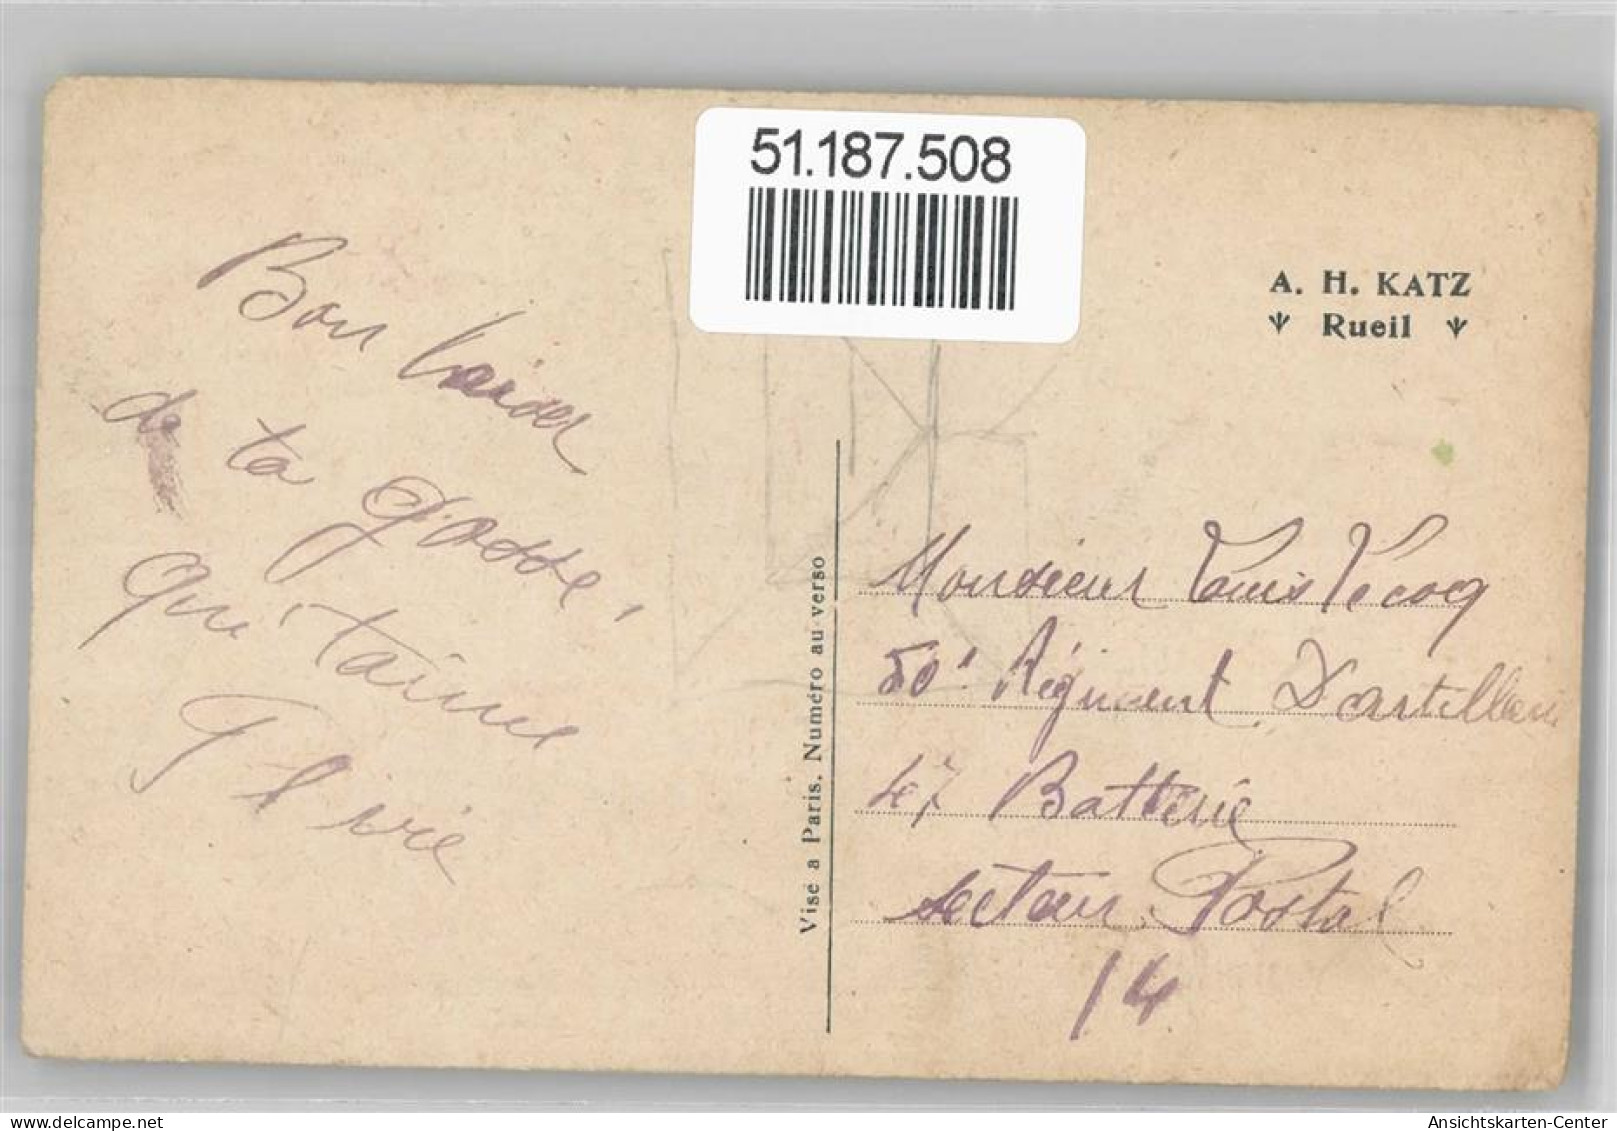 51.187.508
A. H. KATZ
Rueil
Bon baiser
de ta gosse,
qui t'aime
Visé a Paris. Numéro au verso
Monsieur Louis Lecoq
50e Régiment D'artillerie
47 Batterie
Secteur Postal
14
Ansichtskarten-Center